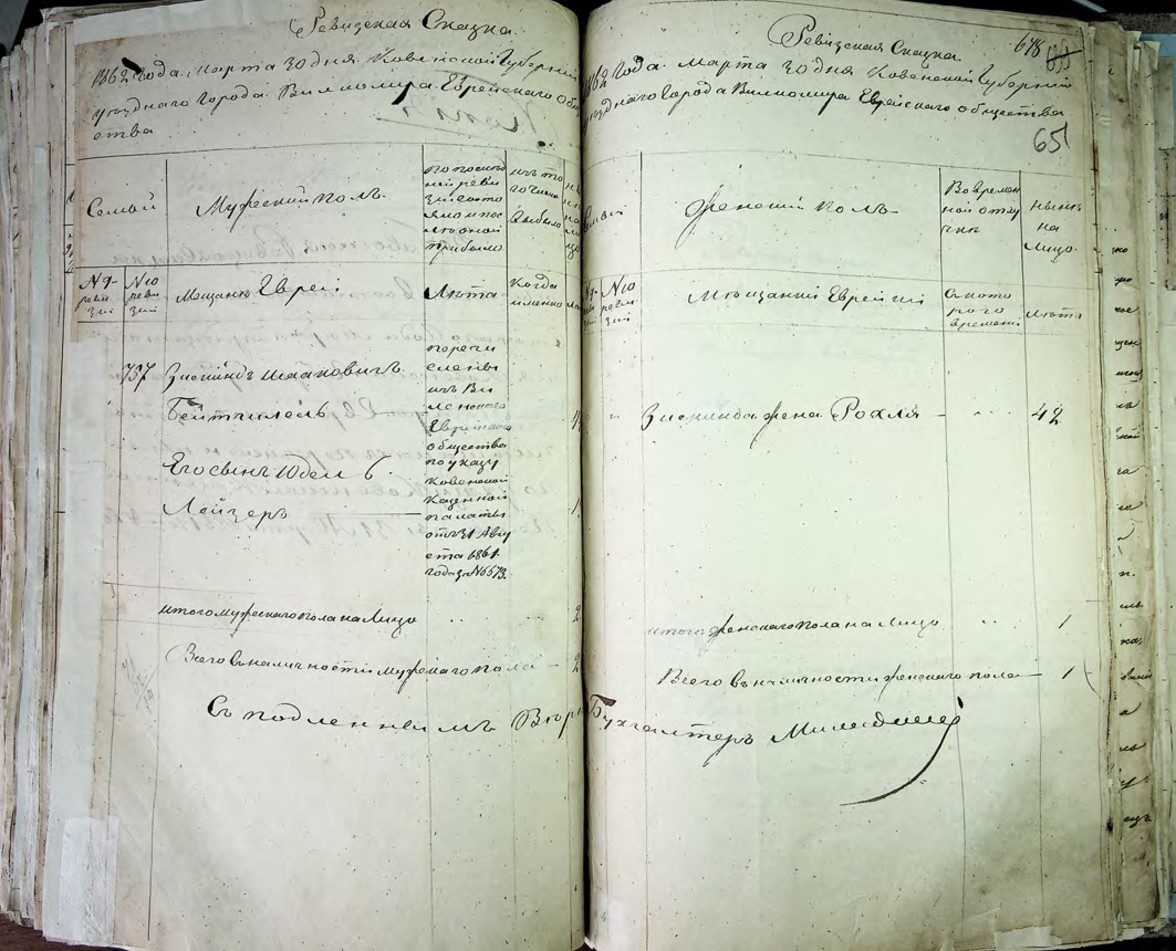 Ревизская Сказка.
1862 года Марта 30 дня Ковенской Губернии
уезднаго Города Вилкомира Еврейскаго Обще
ства
Семьи
Мужеский полъ
по послед
ней реви
зіи состо
яло и пос
ле оной
прибыло
изъ то
го числа
выбыло
реви
зіи
No по
реви
зіи
Мещане Евреи
Лета
когда
именно
737 Зискиндъ Ицковичъ
Его сынъ
Лейзеръ
перечи
слены
изъ Ви
ленскаго
Еврейскаго
общества
по указу
Ковенской
Казенной
палаты
отъ 31 Авгу
ста 1861
года за №
1
итого мужескаго пола на Лицо " " 2
Всего въ наличности мужескаго пола — 2
Съ подленнымъ
Ревизская Сказка.
678
1862 Года Марта 30 дня Ковенской Губерніи
уезднаго Города Вилкомира Еврейскаго общества
65
Женский Полъ
Во времен
ной отлу
чки
ныне
на
Лицо
No по
реви
зіи
Мещанки Еврейки
съ кото
раго
времени
Лета
" Зискинда жена Рохля — " " 42
итого женскаго пола на Лицо " " 1
Всего въ наличности женскаго пола — 1
Бухгалтеръ